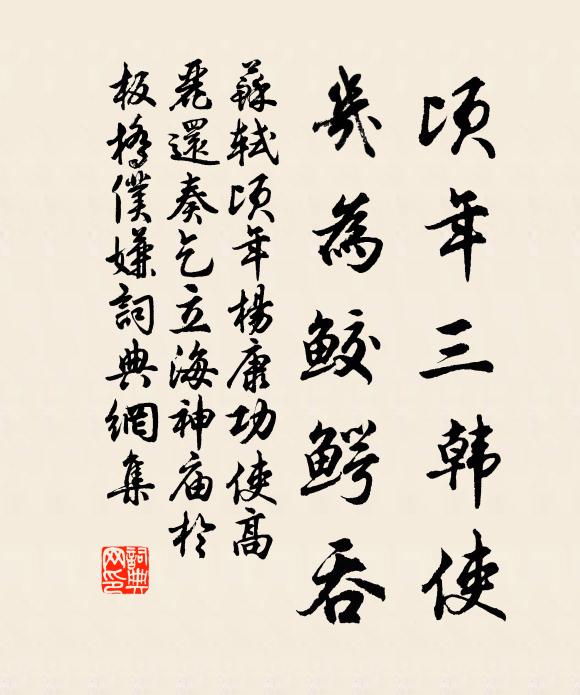 頃年三韩使
幾為鮫鰐吞
蘇軾頃年楊康功使高
麗還奏乞立海神庙於
板橋僕嫌詞典網集
詞典网印